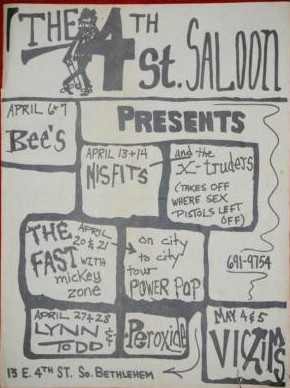 THE 4TH
St. SALOON
PRESENTS
APRIL 6+7
Bee's
APRIL 13+14
MISFITS
and the
X-truders
(TAKES OFF
WHERE SEX
PISTOLS LEFT
OFF)
THE
FAST
APRIL
20 & 21
WITH
mickey
zone
on city
to city
tour
POWER POP
691-9754
APRIL 27+28
LYNN &
TODD
Peroxide
MAY 4 & 5
VICTIMS
13 E. 4TH ST. So. BETHLEHEM